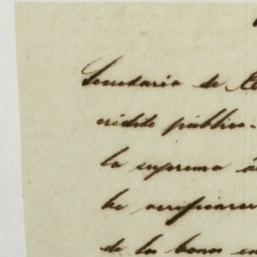 Secretaria de
crédito público.
la suprema
he verificar
de los bonos en